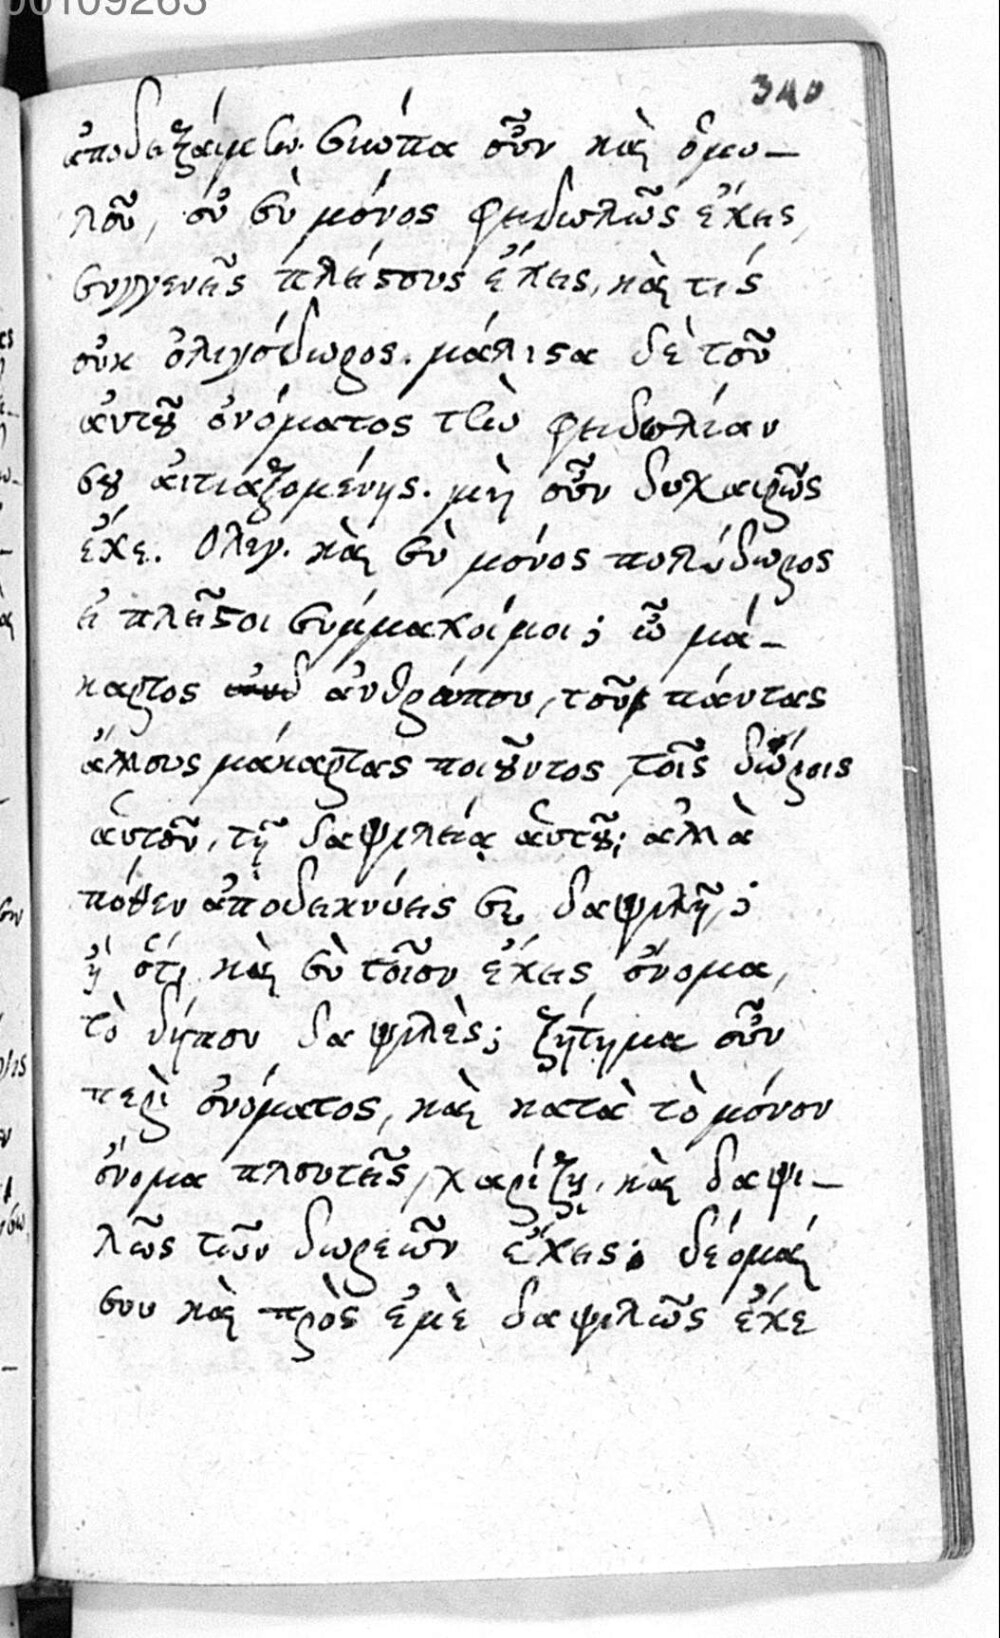 00109263
340
ἀποδειξαίμην. σιώπα οὖν καὶ ὁμο-
λοῦ, οὐ σὺ μόνος φειδωλῶς ἔχεις,
συγγενεῖς πλείστους ἔχεις, καὶ τίς
οὐκ ὀλιγόδωρος. μάλιστα δὲ τοῦ
αὐτοῦ ὀνόματος τὴν φειδωλίαν
σου αἰτιαζομένης. μὴ οὖν δυχαιρῶς
ἔχε. Ολιγ. καὶ σὺ μόνος πολύδωρος
εἶ πλεῖστοι σύμμαχοί μοι; ὦ μά-
καριος ἀνθρώπου, τοῦ πάντας
ἄλλους μακαρίας ποιοῦντος τοῖς δώροις
αὐτοῦ, τῇ δαψιλείᾳ αὐτοῦ; ἀλλὰ
πόθεν ἀποδεικνύεις σε δαψιλῆ;
ἢ ὅτι καὶ σὺ τοῖον ἔχεις ὄνομα,
τὸ δήπου δαψιλὲς; ζήτημα οὖν
περὶ ὀνόματος, καὶ κατὰ τὸ μόνον
ὄνομα πλουτεῖς, χαρίζῃ, καὶ δαψι-
λῶς τῶν δωρεῶν ἔχεις; δέομαί
σου καὶ πρὸς ἐμὲ δαψιλῶς ἔχε